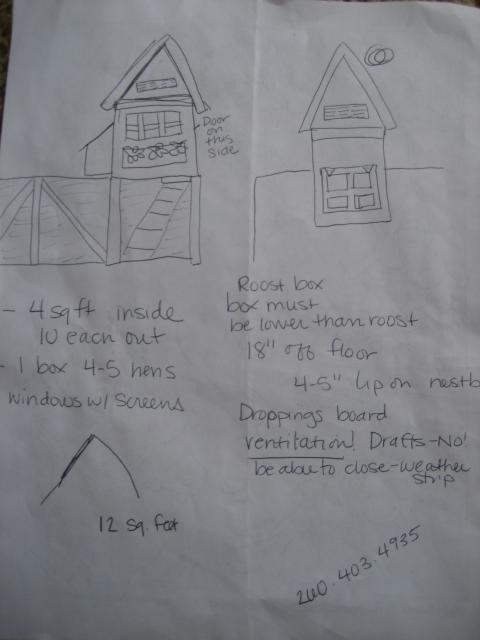 Door
on
this
side
- 4 sq ft inside
10 each out
- 1 box 4-5 hens
windows w/ screens
12 sq. feet
Roost box
box must
be lower than roost
18" off floor
4-5" lip on nestb
Droppings board
ventilation! Drafts-No!
be able to close-weather
strip
240.403.4935